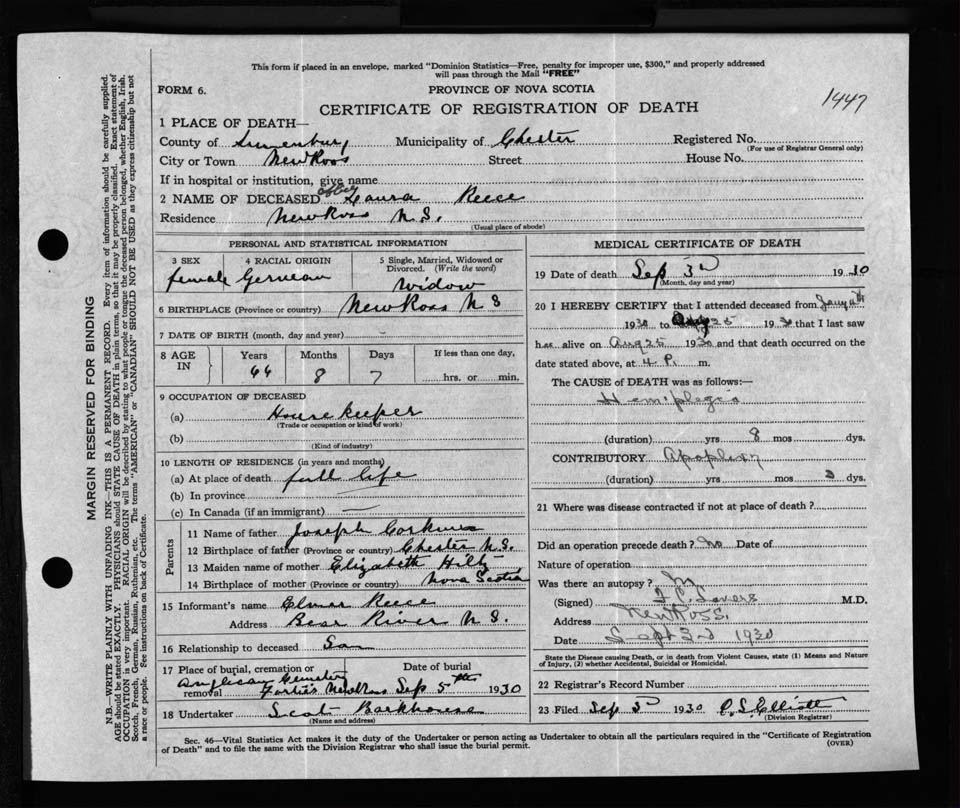 This form if placed in an envelope, marked "Dominion Statistics—Free, penalty for improper use, $300," and properly addressed
will pass through the Mail "FREE"
FORM 6.
PROVINCE OF NOVA SCOTIA
1447
CERTIFICATE OF REGISTRATION OF DEATH
1 PLACE OF DEATH—
County of Lunenburg Municipality of Chester Registered No.
(For use of Registrar General only)
City or Town New Ross Street House No.
If in hospital or institution, give name
2 NAME OF DECEASED Abbey Laura Reece
Residence New Ross N.S.
(Usual place of abode)
PERSONAL AND STATISTICAL INFORMATION
3 SEX 4 RACIAL ORIGIN 5 Single, Married, Widowed or
Divorced. (Write the word)
female German Widow
6 BIRTHPLACE (Province or country) New Ross N S
7 DATE OF BIRTH (month, day and year)
8 AGE IN Years Months Days If less than one day,
8 7 hrs. or min.
9 OCCUPATION OF DECEASED
(a) House keeper
(Trade or occupation or kind of work)
(b)
(Kind of industry)
10 LENGTH OF RESIDENCE (in years and months)
(a) At place of death full life
(b) In province
(c) In Canada (if an immigrant)
Parents
11 Name of father Joseph
12 Birthplace of father (Province or country) Chester N.S.
13 Maiden name of mother Elizabeth Hiltz
14 Birthplace of mother (Province or country) Nova Scotia
15 Informant's name Elmer Reece
Address Bear River N.S.
16 Relationship to deceased Son
17 Place of burial, cremation or removal Date of burial
Anglican Cemetery
New Ross Sep 5th 1930
18 Undertaker Scot Barkhouse
(Name and address)
MEDICAL CERTIFICATE OF DEATH
19 Date of death Sep 3d 1930
(Month, day and year)
20 I HEREBY CERTIFY that I attended deceased from
1930 to Aug 25 1930 that I last saw
her alive on Aug 25 1930 and that death occurred on the
date stated above, at 4 P. m.
The CAUSE OF DEATH was as follows:—
Hemiplegia
(duration) yrs 8 mos dys.
CONTRIBUTORY Apoplexy
(duration) yrs mos dys.
21 Where was disease contracted if not at place of death?
Did an operation precede death? No Date of
Nature of operation
Was there an autopsy?
(Signed) M.D.
Address New Ross.
Date Sept 3d 1930
State the Disease causing Death, or in death from Violent Causes, state (1) Means and Nature
of Injury, (2) whether Accidental, Suicidal or Homicidal.
22 Registrar's Record Number
23 Filed Sep 3d 1930 Elliott
(Division Registrar)
Sec. 46—Vital Statistics Act makes it the duty of the Undertaker or person acting as Undertaker to obtain all the particulars required in the "Certificate of Registration
of Death" and to file the same with the Division Registrar who shall issue the burial permit.
(OVER)
MARGIN RESERVED FOR BINDING
N.B.—WRITE PLAINLY WITH UNFADING INK—THIS IS A PERMANENT RECORD. Every item of information should be carefully supplied.
AGE should be stated EXACTLY. PHYSICIANS should STATE CAUSE OF DEATH in plain terms, so that it may be properly classified. Exact statement of
OCCUPATION is very important. RACIAL ORIGIN will be described by stating to what people or tongue the deceased person belonged, whether English, Irish,
Scotch, French, German, Russian, Ruthenian, etc. The terms "AMERICAN" or "CANADIAN" SHOULD NOT BE USED as they express citizenship but not
a race or people. See instructions on back of Certificate.